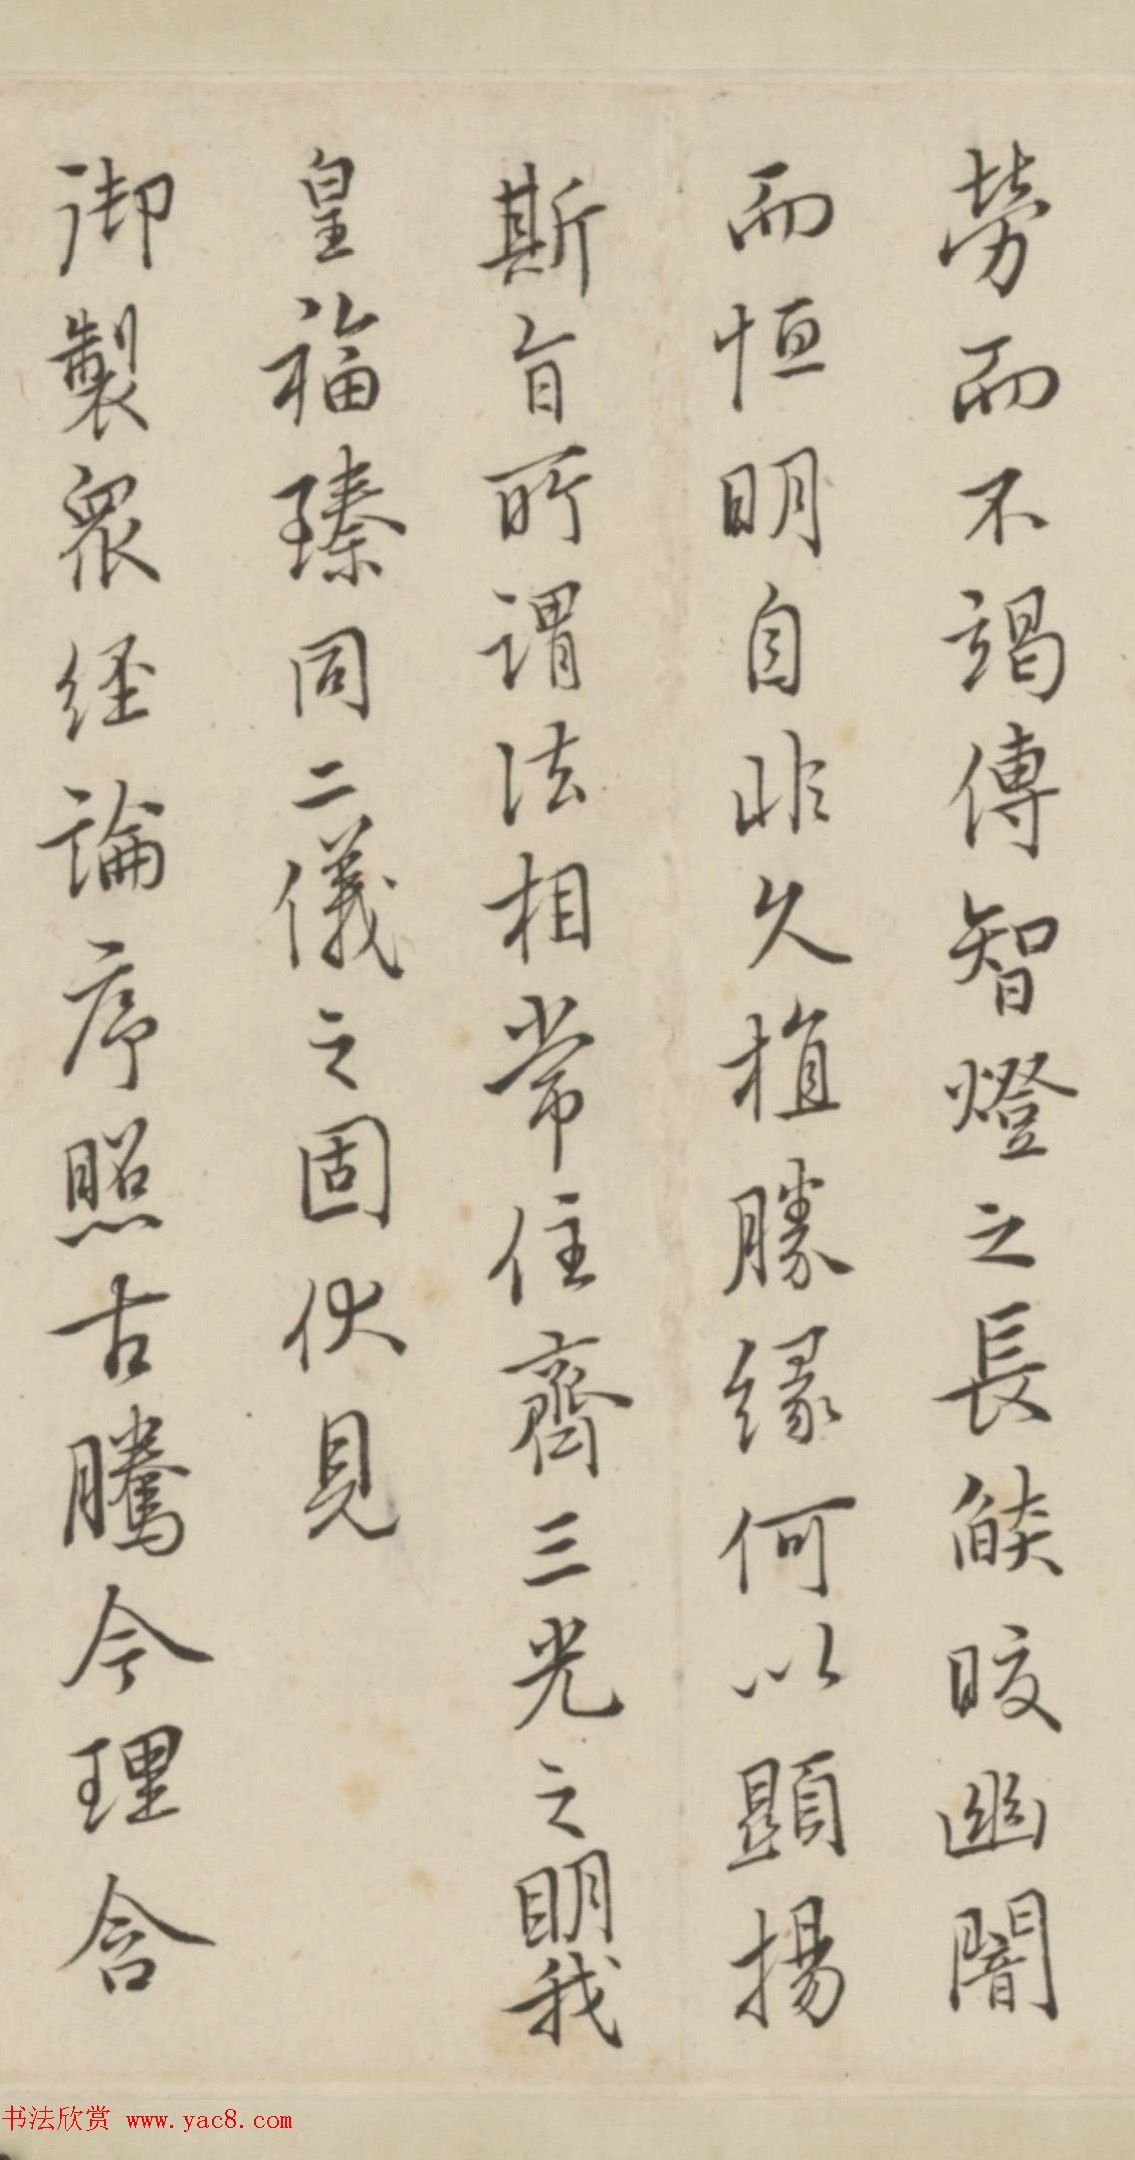 勞而不竭傳智燈之長燄皎幽闇
而恒明自非久植勝緣何以顯揚
斯旨所謂法相常住齊三光之明我
皇福臻同二儀之固伏見
御製眾経論序照古騰今理含
书法欣赏 www.yac8.com